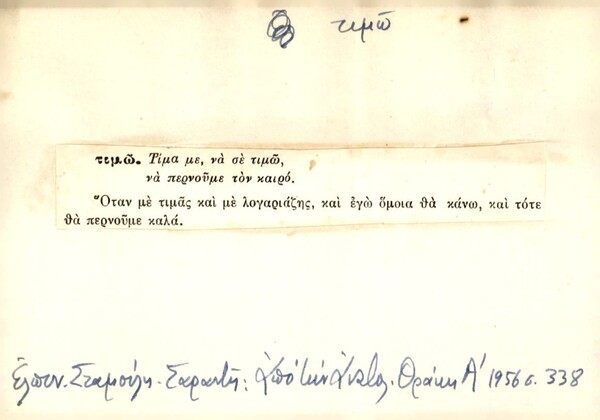 τιμῶ
τιμῶ. Τίμα με, νὰ σὲ τιμῶ,
νὰ περνοῦμε τὸν καιρό.
Ὅταν μὲ τιμᾷς καὶ μὲ λογαριάζῃς, καὶ ἐγὼ ὅμοια θὰ κάνω, καὶ τότε
θὰ περνοῦμε καλά.
Ἐλπιν. Σταμούλη - Σαραντῆ: Ἀπὸ τὴν Ἀνατολ. Θράκη Α' 1956 σ. 338